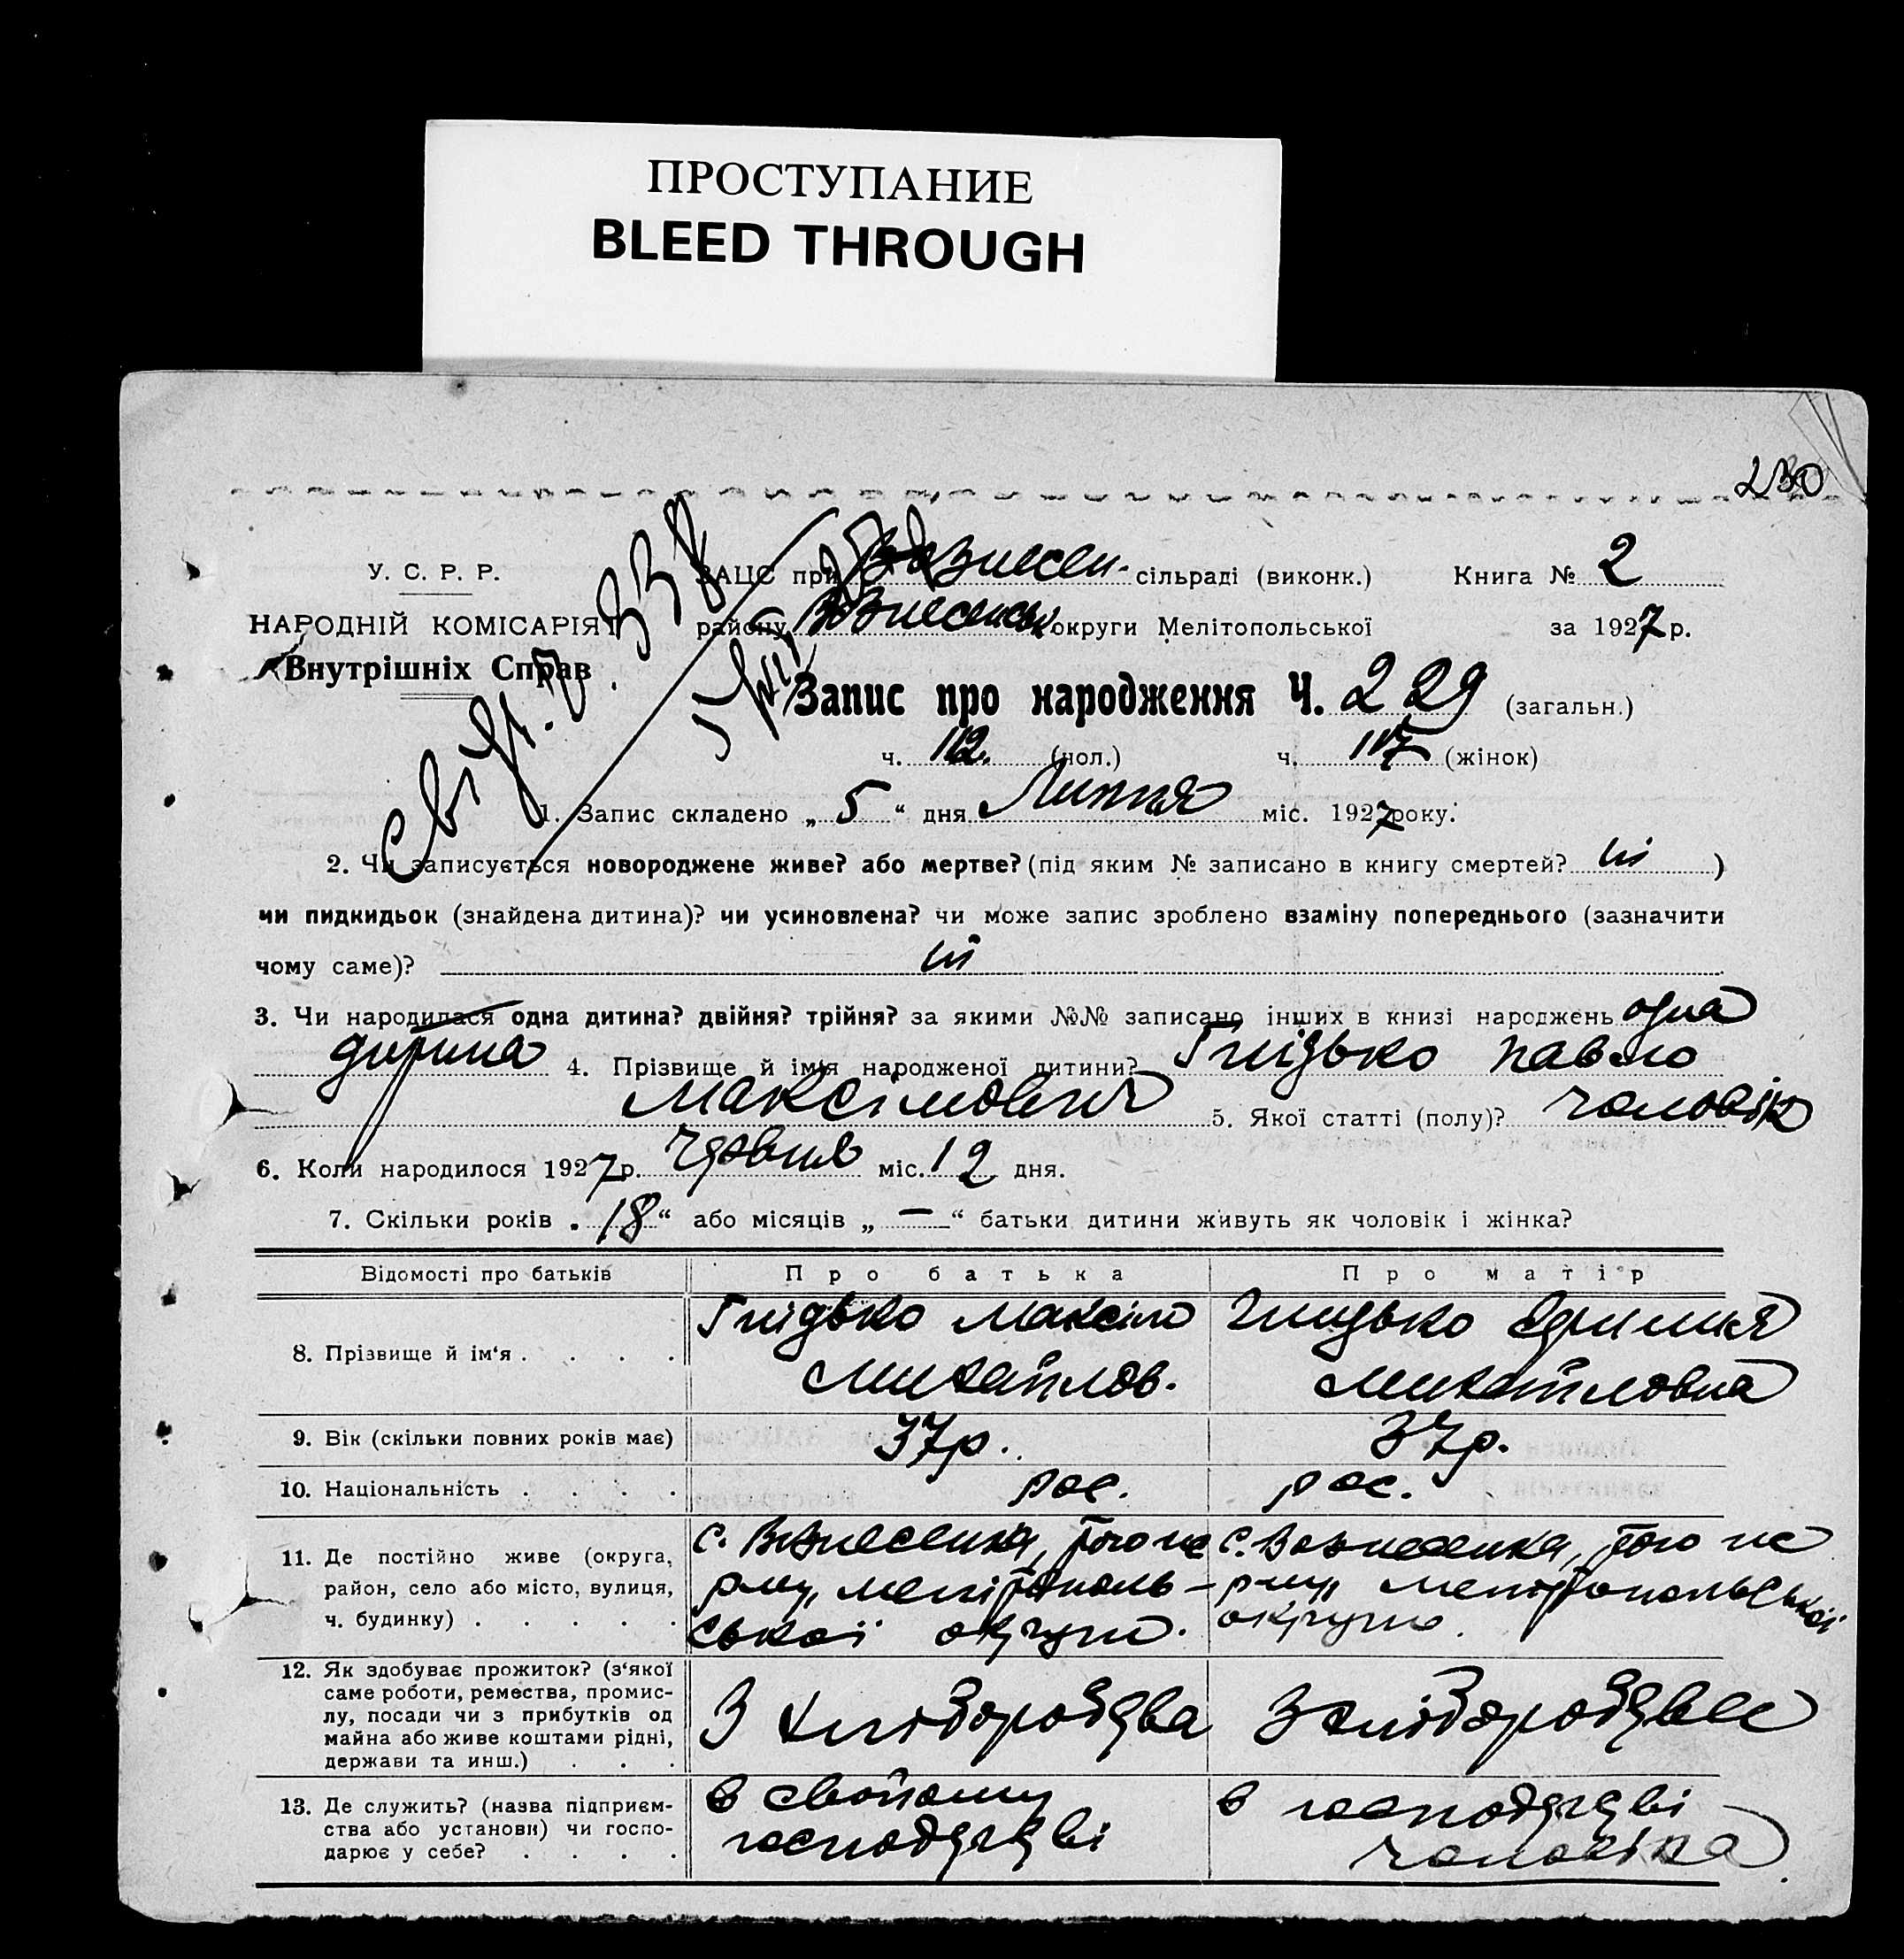 ПРОСТУПАНИЕ
BLEED THROUGH
230
У. С. Р. Р.
НАРОДНІЙ КОМІСАРІЯТ
Внутрішніх Справ
338
ЗАЦС при Вознесен. сільраді (виконк.) Книга № 2
району Вознесенськ округи Мелітопольської за 1927 р.
Запис про народження Ч. 229 (загальн.)
ч. 112. (чол.) ч. 117 (жінок)
1. Запис складено „ 5 “ дня Липня міс. 1927 року.
2. Чи записується новороджене живе? або мертве? (під яким № записано в книгу смертей? ні )
чи пидкидьок (знайдена дитина)? чи усиновлена? чи може запис зроблено взаміну попереднього (зазначити
чому саме)? ні
3. Чи народилася одна дитина? двійня? трійня? за якими №№ записано інших в книзі народжень одна
дитина 4. Прізвище й ім'я народженої дитини? Гнідько Павло
Максімович 5. Якої статті (полу)? чоловік
6. Коли народилося 1927 р. червня міс. 12 дня.
7. Скільки років „ 18 “ або місяців „ — “ батьки дитини живуть як чоловік і жінка?
Відомості про батьків Про батька Про матір
8. Прізвище й ім'я . . . . Гнідько Максім Михайлов. Гнидько Михайловна
9. Вік (скільки повних років має) 37р. 37р.
10. Національність . . . . рос. рос.
11. Де постійно живе (округа,
район, село або місто, вулиця,
ч. будинку) . . . . .
с. Вознесенка, того не
р-ну, Мелітополь-
ської округи.
с. Вознесенка, того не
р-ну, Мелітопольської
округи.
12. Як здобуває прожиток? (з'якої
саме роботи, ремества, промис-
лу, посади чи з прибутків од
майна або живе коштами рідні,
держави та инш.) . . .
З хліборобства
З хліборобства
13. Де служить? (назва підприєм-
ства або установи) чи госпо-
дарює у себе? . . . .
в свойому
господарстві
в господарстві
чоловіка